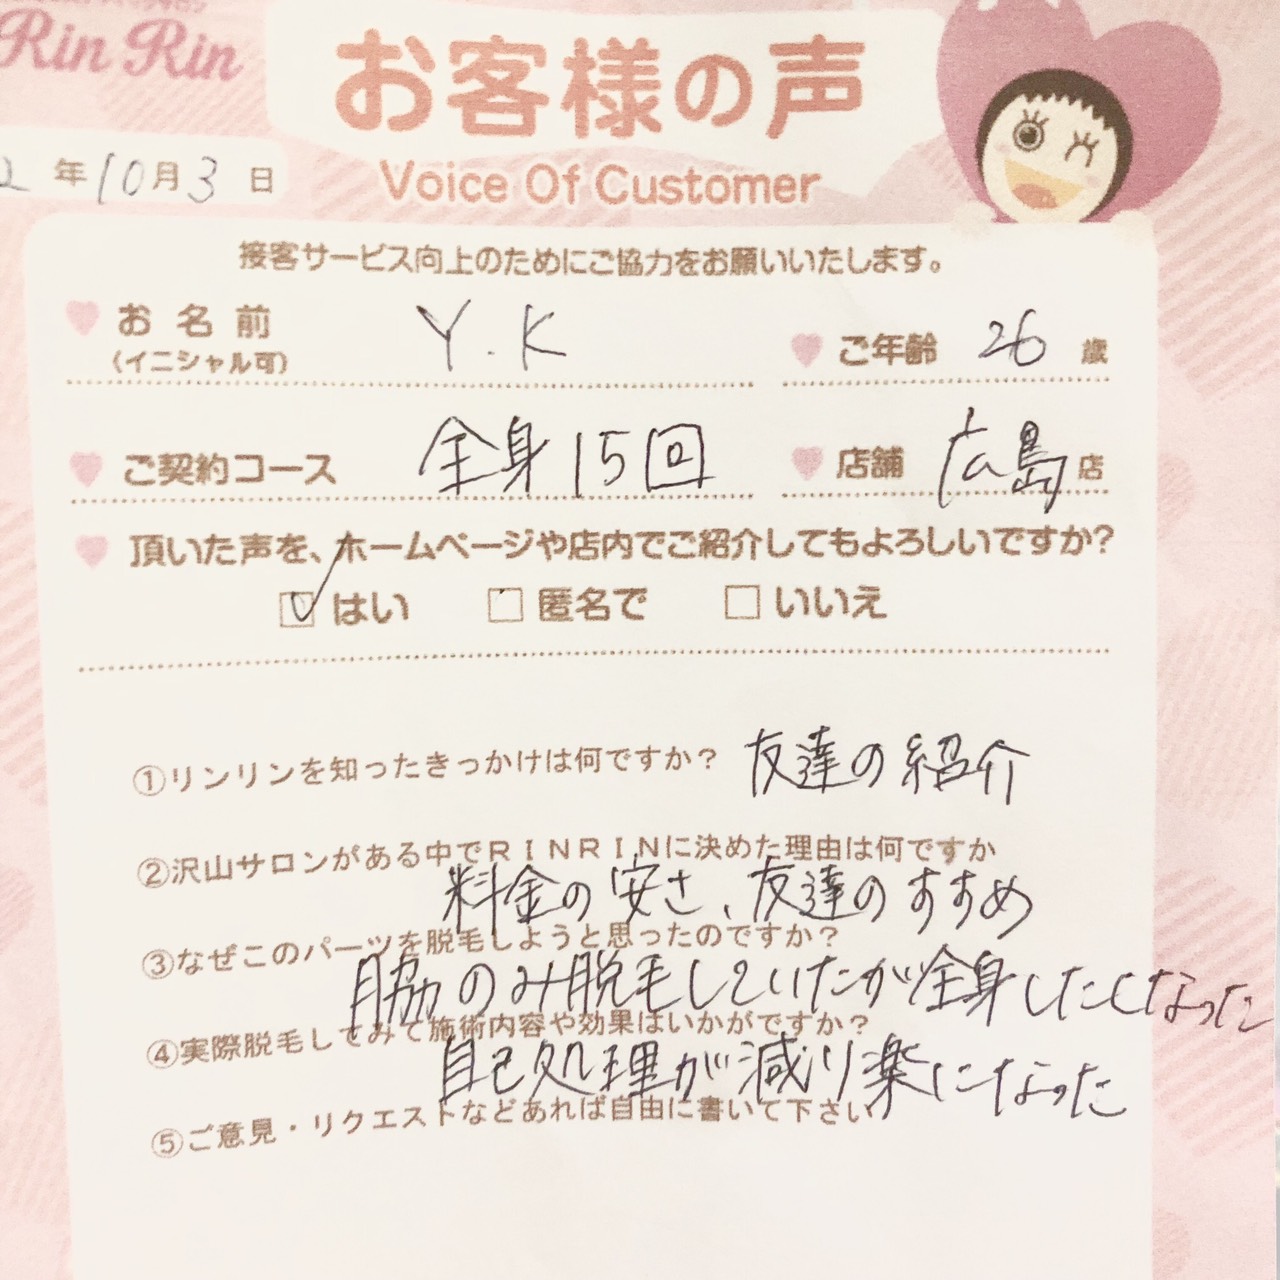 Rin Rin
お客様の声
Voice Of Customer
2 年 10月 3 日
接客サービス向上のためにご協力をお願いいたします。
お名前 Y.K ご年齢 26 歳
(イニシャル可)
ご契約コース 全身15回 店舗 広島店
頂いた声を、ホームページや店内でご紹介してもよろしいですか?
はい 匿名で いいえ
①リンリンを知ったきっかけは何ですか? 友達の紹介
②沢山サロンがある中でRINRINに決めた理由は何ですか
料金の安さ、友達のすすめ
③なぜこのパーツを脱毛しようと思ったのですか?
脇のみ脱毛していたが全身したくなった
④実際脱毛してみて施術内容や効果はいかがですか?
自己処理が減り楽になった
⑤ご意見・リクエストなどあれば自由に書いて下さい